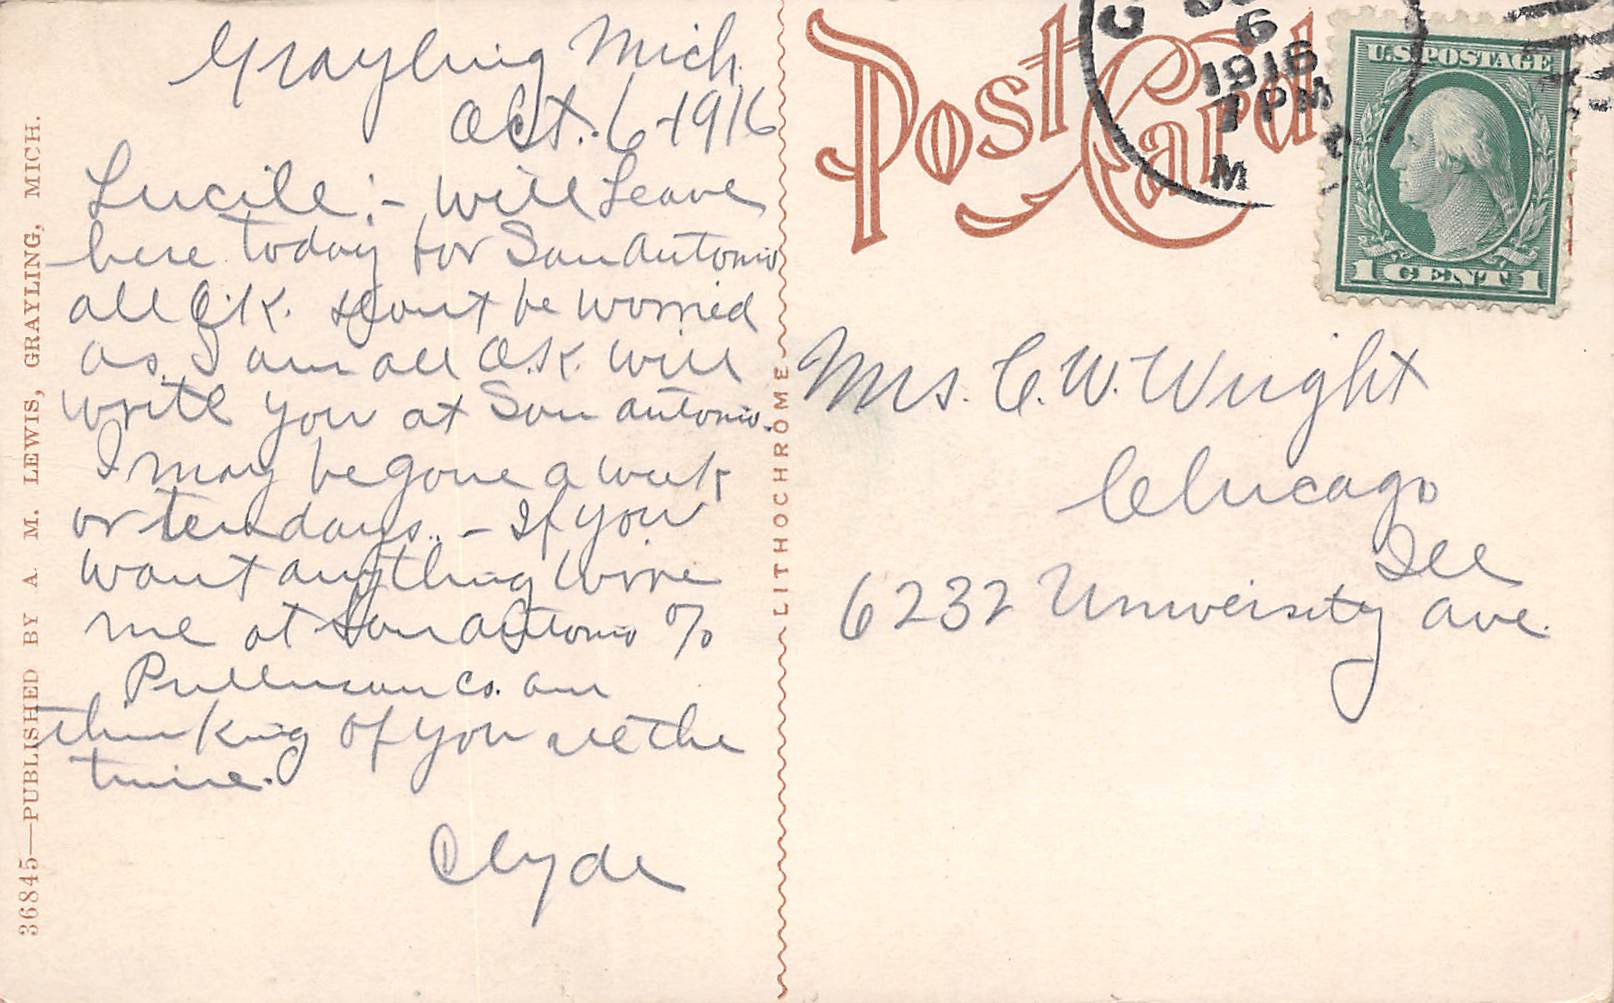 Grayling Mich.
Oct. 6-1916
Lucile:- Will Leave
here today for San Antonio
all O.K. dont be worried
as I am all O.K. will
write you at San Antonio.
I may be gone a week
or ten days. - If you
want anything wire
me at San Antonio %
Pullman Co. am
thinking of you all the
time.
Clyde
36845—PUBLISHED BY A. M. LEWIS, GRAYLING, MICH.
LITHOCHROME
Post Card
6
1916
7 PM
M
U.S. POSTAGE
1 CENT 1
Mrs. C. W. Wright
Chicago
Ill
6232 University Ave.